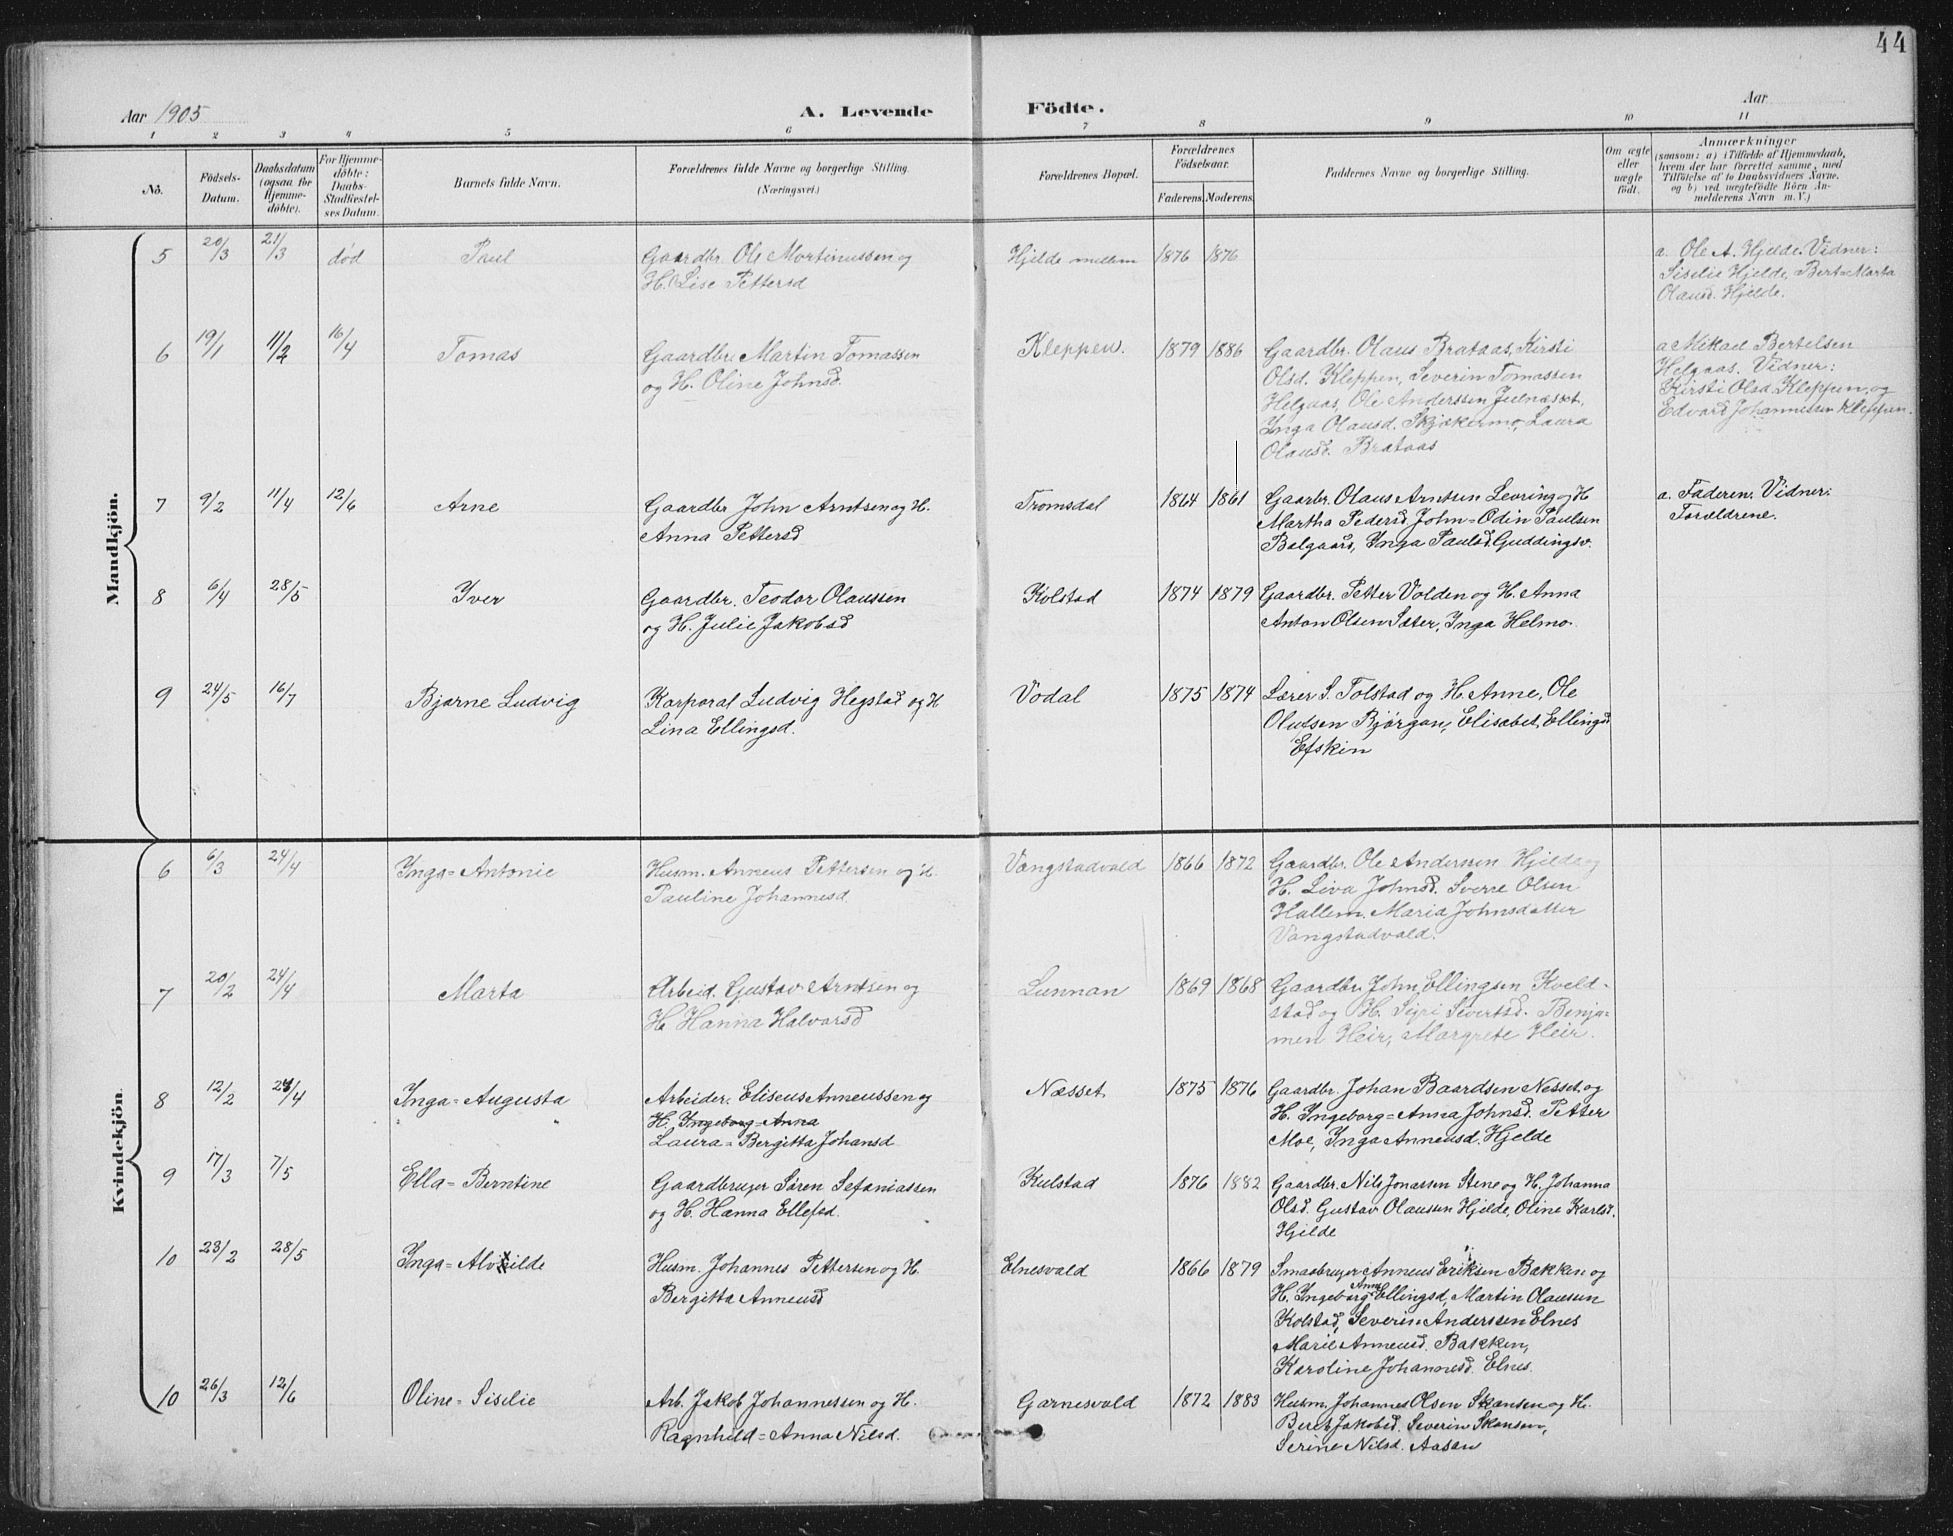 44
Aar 1905
A. Levende
Födte.
Aar
1 2 3 4 5 6 7 8 9 10 11
No.
Födsels-
Datum.
Daabsdatum
(ogsaa for
Hjemme-
döbte).
For Hjemme-
döbte:
Daabs-
Stadfæstel-
ses Datum.
Barnets fulde Navn.
Forældrenes fulde Navne og borgerlige Stilling.
(Næringsvei.)
Forældrenes Bopæl.
Forældrenes
Födselsaar.
Faderens. Moderens.
Faddernes Navne og borgerlige Stilling.
Om ægte
eller
uægte
födt.
Anmærkninger
(saasom: a) i Tilfælde af Hjemmedaab,
hvem der har forrettet samme, med
Tilföielse af to Daabsvidners Navne.
og b) ved uægtefödte Börn An-
melderens Navn m. V.)
Mandkjön.
5 20/3 21/3 död Paul
Gaardbr. Ole Martinussen og
H. Lise Pettersd
Hjelde mellem 1876 1876
a. Ole A. Hjelde. Vidner:
Siselie Hjelde, Beret-Marta
Olausd. Hjelde.
6 19/1 11/2 16/4 Tomas
Gaardbr. Martin Tomassen
og H. Oline Johnsd.
Kleppen. 1879 1886
Gaardbr. Olaus Brataas, Kirsti
Olsd. Kleppen, Severin Tomassen
Helgaas, Ole Anderssen Julnesset,
Inga Olausd. Skjækermo, Laura
Olausd. Brataas
a Mikael Bertelsen
Helgaas. Vidner:
Kirsti Olsd. Kleppen og
Edvard Johannessen Kleppen.
7 9/2 11/4 12/6 Arne
Gaardbr John Arntsen og H.
Anna Pettersd
Tromsdal 1864 1861
Gaarbr. Olaus Arntsen Levring og H
Martha Pedersd John=Odin Paulsen
Balgaard, Inga Paulsd. Guddingsv.
a. Faderen. Vidner:
Forældrene.
8 6/4 28/5 Iver
Gaardbr. Teodor Olaussen
og H. Julie Jakobsd
Kolstad 1874 1879
Gaardbr. Petter Volden og H. Anna
Anton Olsen Sæter, Inga Helmo.
9 24/5 16/7 Bjarne Ludvig
Korporal Ludvig Hegstad og H
Lina Ellingsd.
Vodal 1875 1874
Lærer S. Tolstad og H. Anne, Ole
Olufsen Bjørgan, Elisabet Ellingsd
Efskin
Kvindekjön.
6 6/3 24/4 Inga=Antonie
Husm. Anneus Pettersen og H.
Pauline Johannesd.
Vangstadvald 1866 1872
Gaardbr. Ole Anderssen Hjelde og
H. Liva Johnsd. Sverre Olsen
Hallem. Maria Johnsdatter
Vangstadvald.
7 20/2 24/4 Marta
Arbeid. Gustav Arntsen og
H. Hanna Halvarsd
Lunnan 1869 1868
Gaardbr. John Ellingsen Kveld-
stad og H. Sigri Sivertsd. Benja=
men Heir, Margrete Heir.
8 12/2 24/4 Inga=Augusta
Arbeider. Eliseus Anneussen og
H. Ingeborg=Anna
Laura=Bergitta Johansd
Næsset 1875 1876
Gaardbr. Johan Baardsen Nesset og
H. Ingeborg=Anna Johnsd. Petter
Moe, Inga Anneusd. Hjelde
9 17/3 7/5 Ella=Berntine
Gaardbruger Søren Sefaniassen
og H. Hanna Ellefsd.
Kulstad 1876 1882
Gaardbr. Nils Jonassen Stene og H. Johanna
Olsd. Gustav Olausen Hjelde, Oline Karlsd.
Hjelde
10 23/2 28/5 Inga=Alvilde
Husm. Johannes Pettersen og H.
Bergitta Anneusd
Elnesvald 1866 1879
Smaabruger Anneus Eriksen Bakken og
H. Ingeborg Anna Ellingsd, Martin Olausen
Kolstad, Severin Anderssen Elnes
Marie Anneusd. Bakken,
Karoline Johannesd. Elnes.
10 26/3 12/6 Oline=Siselie
Arb. Jakob Johannessen og H.
Ragnhild=Anna Nilsd.
Garnesvald 1872 1883
Husm. Johannes Olsen Skansen og H.
Beret Jakobsd. Severin Skansen,
Serine Nilsd. Aasan